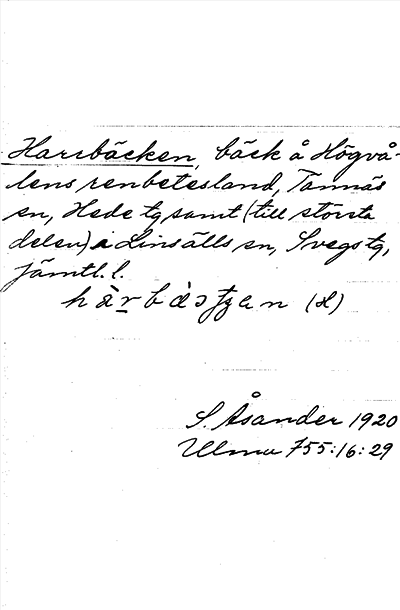 Harrbäcken, bäck å Högvå-
lens renbetesland, Tännäs
sn, Hede tg, samt (till största
delen) å Linsälls sn, Svegs tg,
Jämtl. l.
(H)
S. Åsander 1920
Ulma 755:16:29